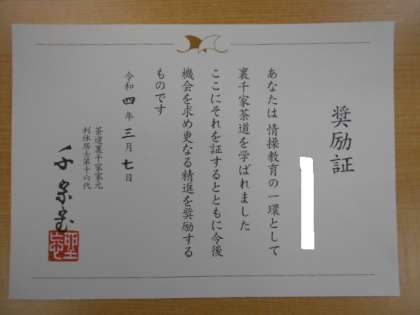 奨励証
あなたは 情操教育の一環として
裏千家茶道を学ばれました
ここにそれを証するとともに今後
機会を求め更なる精進を奨励する
ものです
令和四年三月七日
茶道裏千家家元
利休居士第十六代
千宗室